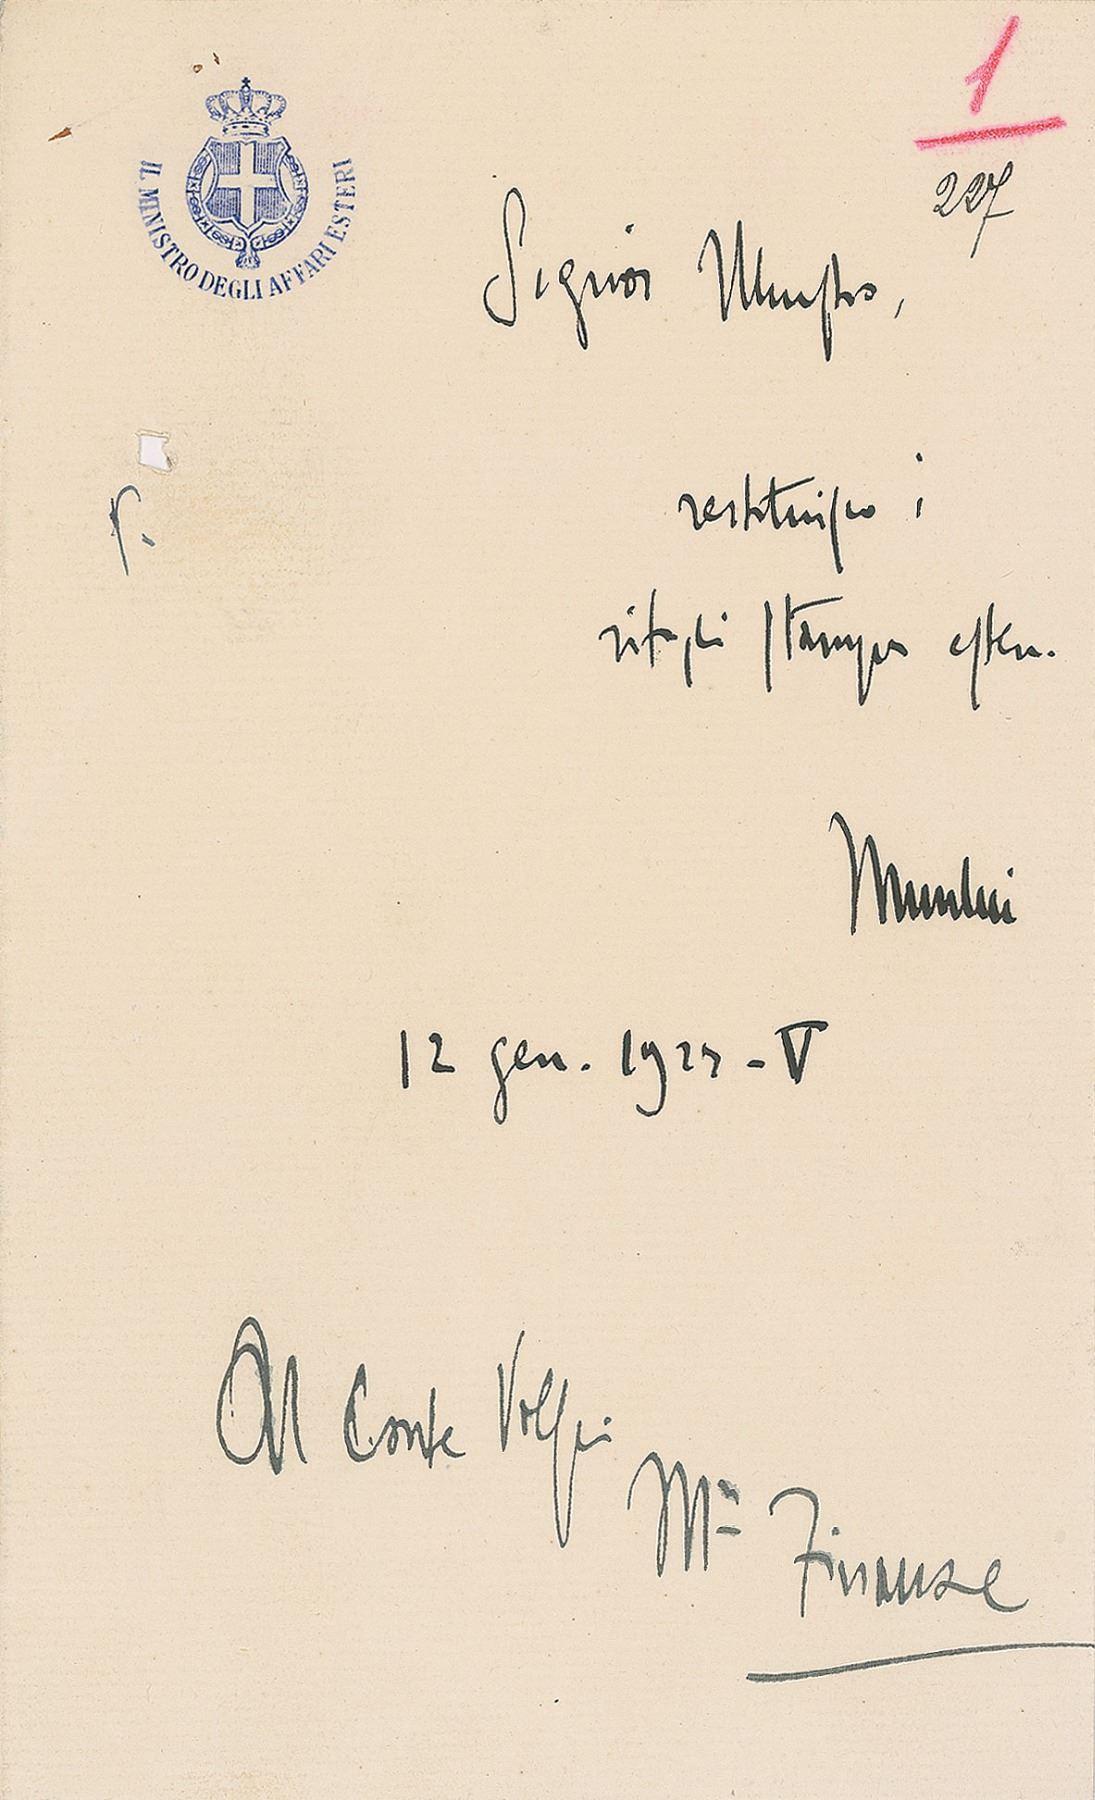 1
227
IL MINISTRO DEGLI AFFARI ESTERI
Signor Ministro,
restituisco i
ritagli stampa estera.
Mussolini
12 gen. 1927 - V
Al Conte Volpi
Mº Finanze